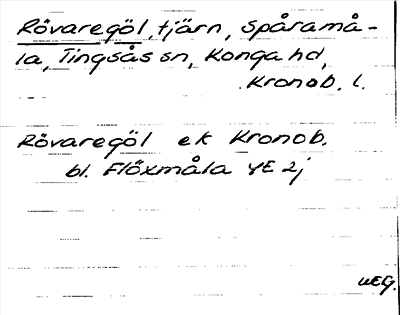 Rövaregöl, tjärn, Spåramå-
la, Tingsås sn, Konga hd,
Kronob. l.
Rövaregöl ek Kronob.
bl. Flöxmåla YE 2j
WEG.